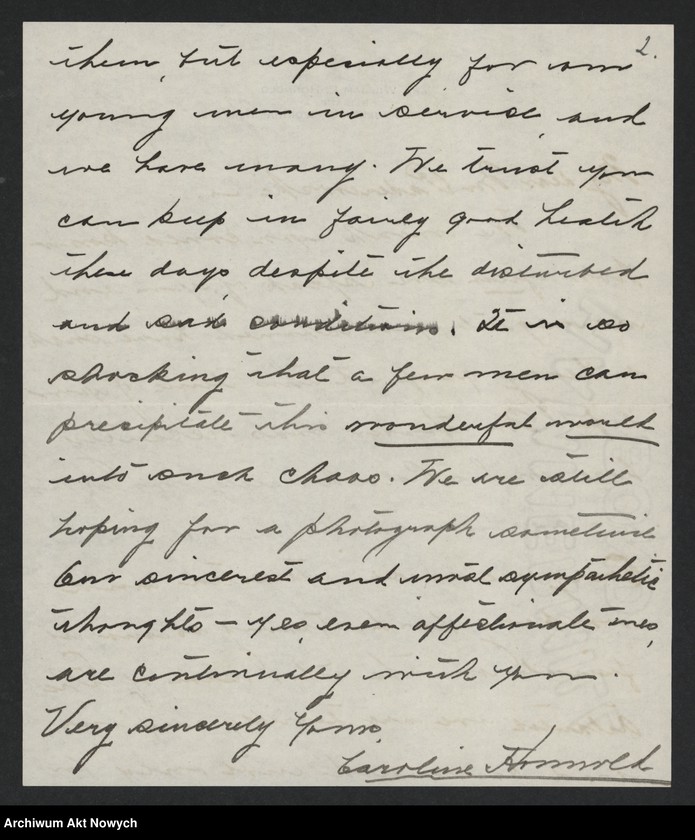 2.
them, but especially for our
young men in service, and
we have many. We trust you
can keep in fairly good health
these days despite the disturbed
and sad conditions. It is so
shocking that a few men can
precipitate this wonderful world
into such chaos. We are still
hoping for a photograph sometime
Our sincerest and most sympathetic
thoughts – yes, even affectionate ones,
are continually with you.
Very sincerely yours,
Caroline
Archiwum Akt Nowych